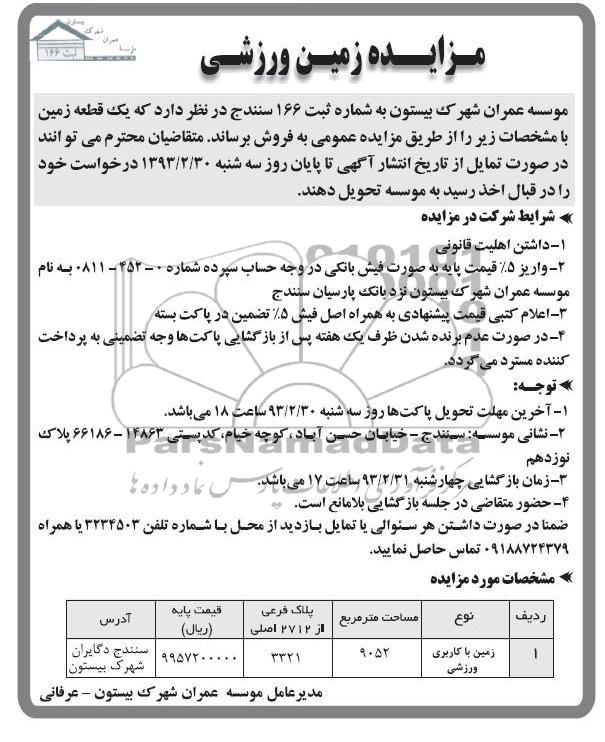 بیستون
شهرک
عمران
موسسه
ثبت ۱۶۶
مـزایـده زمیـن ورزشـی
موسسه عمران شهرک بیستون به شماره ثبت ۱۶۶ سنندج در نظر دارد که یک قطعه زمین
با مشخصات زیر را از طریق مزایده عمومی به فروش برساند. متقاضیان محترم می توانند
در صورت تمایل از تاریخ انتشار آگهی تا پایان روز سه شنبه ۱۳۹۳/۲/۳۰ درخواست خود
را در قبال اخذ رسید به موسسه تحویل دهند.
شرایط شرکت در مزایده
۱-داشتن اهلیت قانونی
۲-واریز ۵٪ قیمت پایه به صورت فیش بانکی در وجه حساب سپرده شماره ۰-۴۵۲-۰۸۱۱ به نام
موسسه عمران شهرک بیستون نزد بانک پارسیان سنندج
۳-اعلام کتبی قیمت پیشنهادی به همراه اصل فیش ۵٪ تضمین در پاکت بسته
۴-در صورت عدم برنده شدن ظرف یک هفته پس از بازگشایی پاکت‌ها وجه تضمینی به پرداخت
کننده مسترد می گردد.
توجه:
۱-آخرین مهلت تحویل پاکت‌ها روز سه شنبه ۹۳/۲/۳۰ ساعت ۱۸ می‌باشد.
۲-نشانی موسسه: سنندج - خیابان حسن آباد ، کوچه خیام، کدپستی ۱۴۸۶۳-۶۶۱۸۶ پلاک
نوزدهم
۳-زمان بازگشایی چهارشنبه ۹۳/۲/۳۱ ساعت ۱۷ می‌باشد.
۴-حضور متقاضی در جلسه بازگشایی بلامانع است.
ضمنا در صورت داشتن هر سئوالی یا تمایل بازدید از محل با شماره تلفن ۳۲۳۴۵۰۳ یا همراه
۰۹۱۸۸۷۲۴۳۷۹ تماس حاصل نمایید.
ParsNamadData
مرکز فرآوری اطلاعات پارس نماد داده ها
مشخصات مورد مزایده
ردیف نوع مساحت مترمربع پلاک فرعی از ۲۷۱۲ اصلی قیمت پایه (ریال) آدرس
۱ زمین با کاربری ورزشی ۹۰۵۲ ۳۳۲۱ ۹۹۵۷۲۰۰۰۰۰ سنندج دگایران شهرک بیستون
مدیرعامل موسسه عمران شهرک بیستون - عرفانی